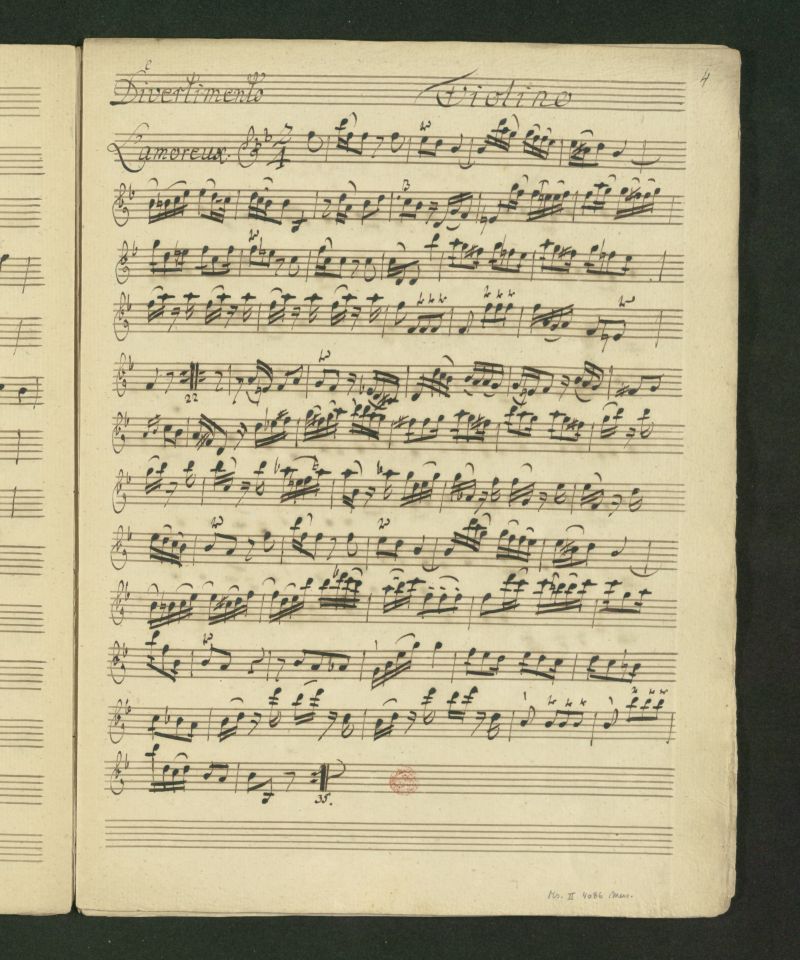 4
Divertimento Violino
L'amoreux. 2/4
3
22
35.
Ms. II 4086 Mus.